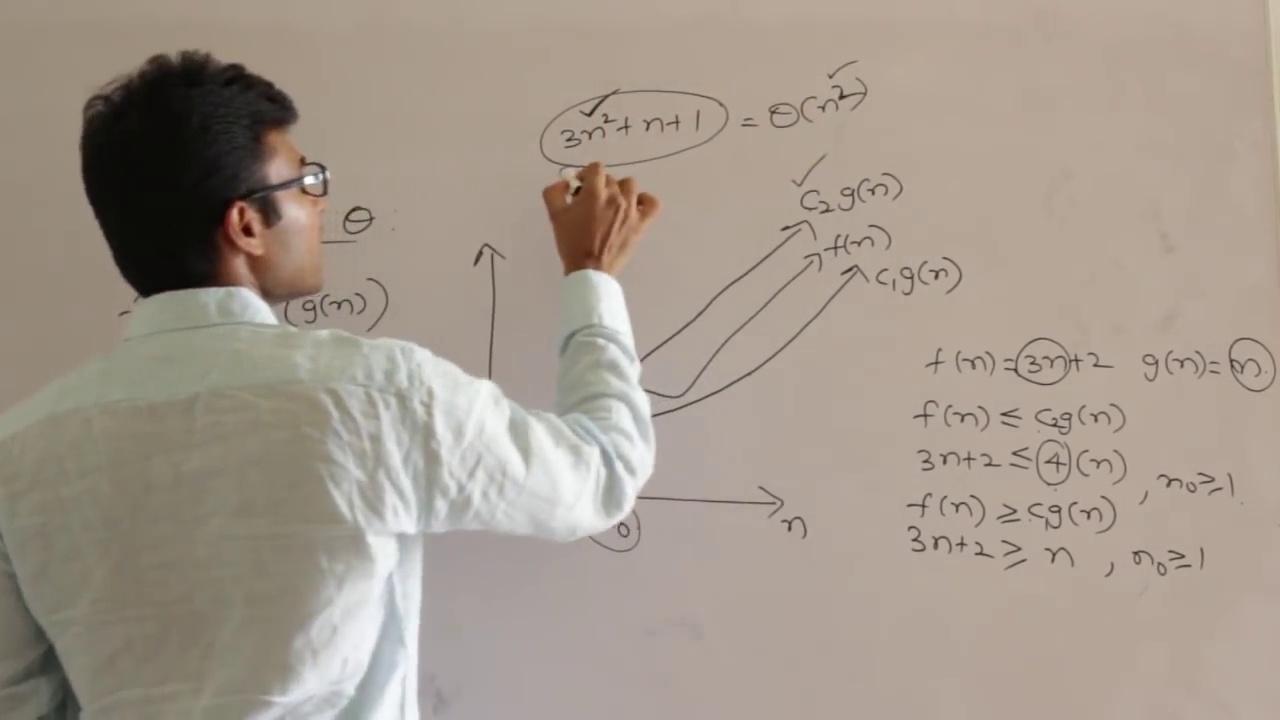 3n²+n+1 = Θ(n²)
θ :
(g(n))
c₂g(n)
f(n)
c₁g(n)
n
f(n)=3n+2 g(n)=n.
f(n) ≤ c₂g(n)
3n+2 ≤ 4(n) , n₀≥1.
f(n) ≥ c₁g(n)
3n+2 ≥ n , n₀≥1